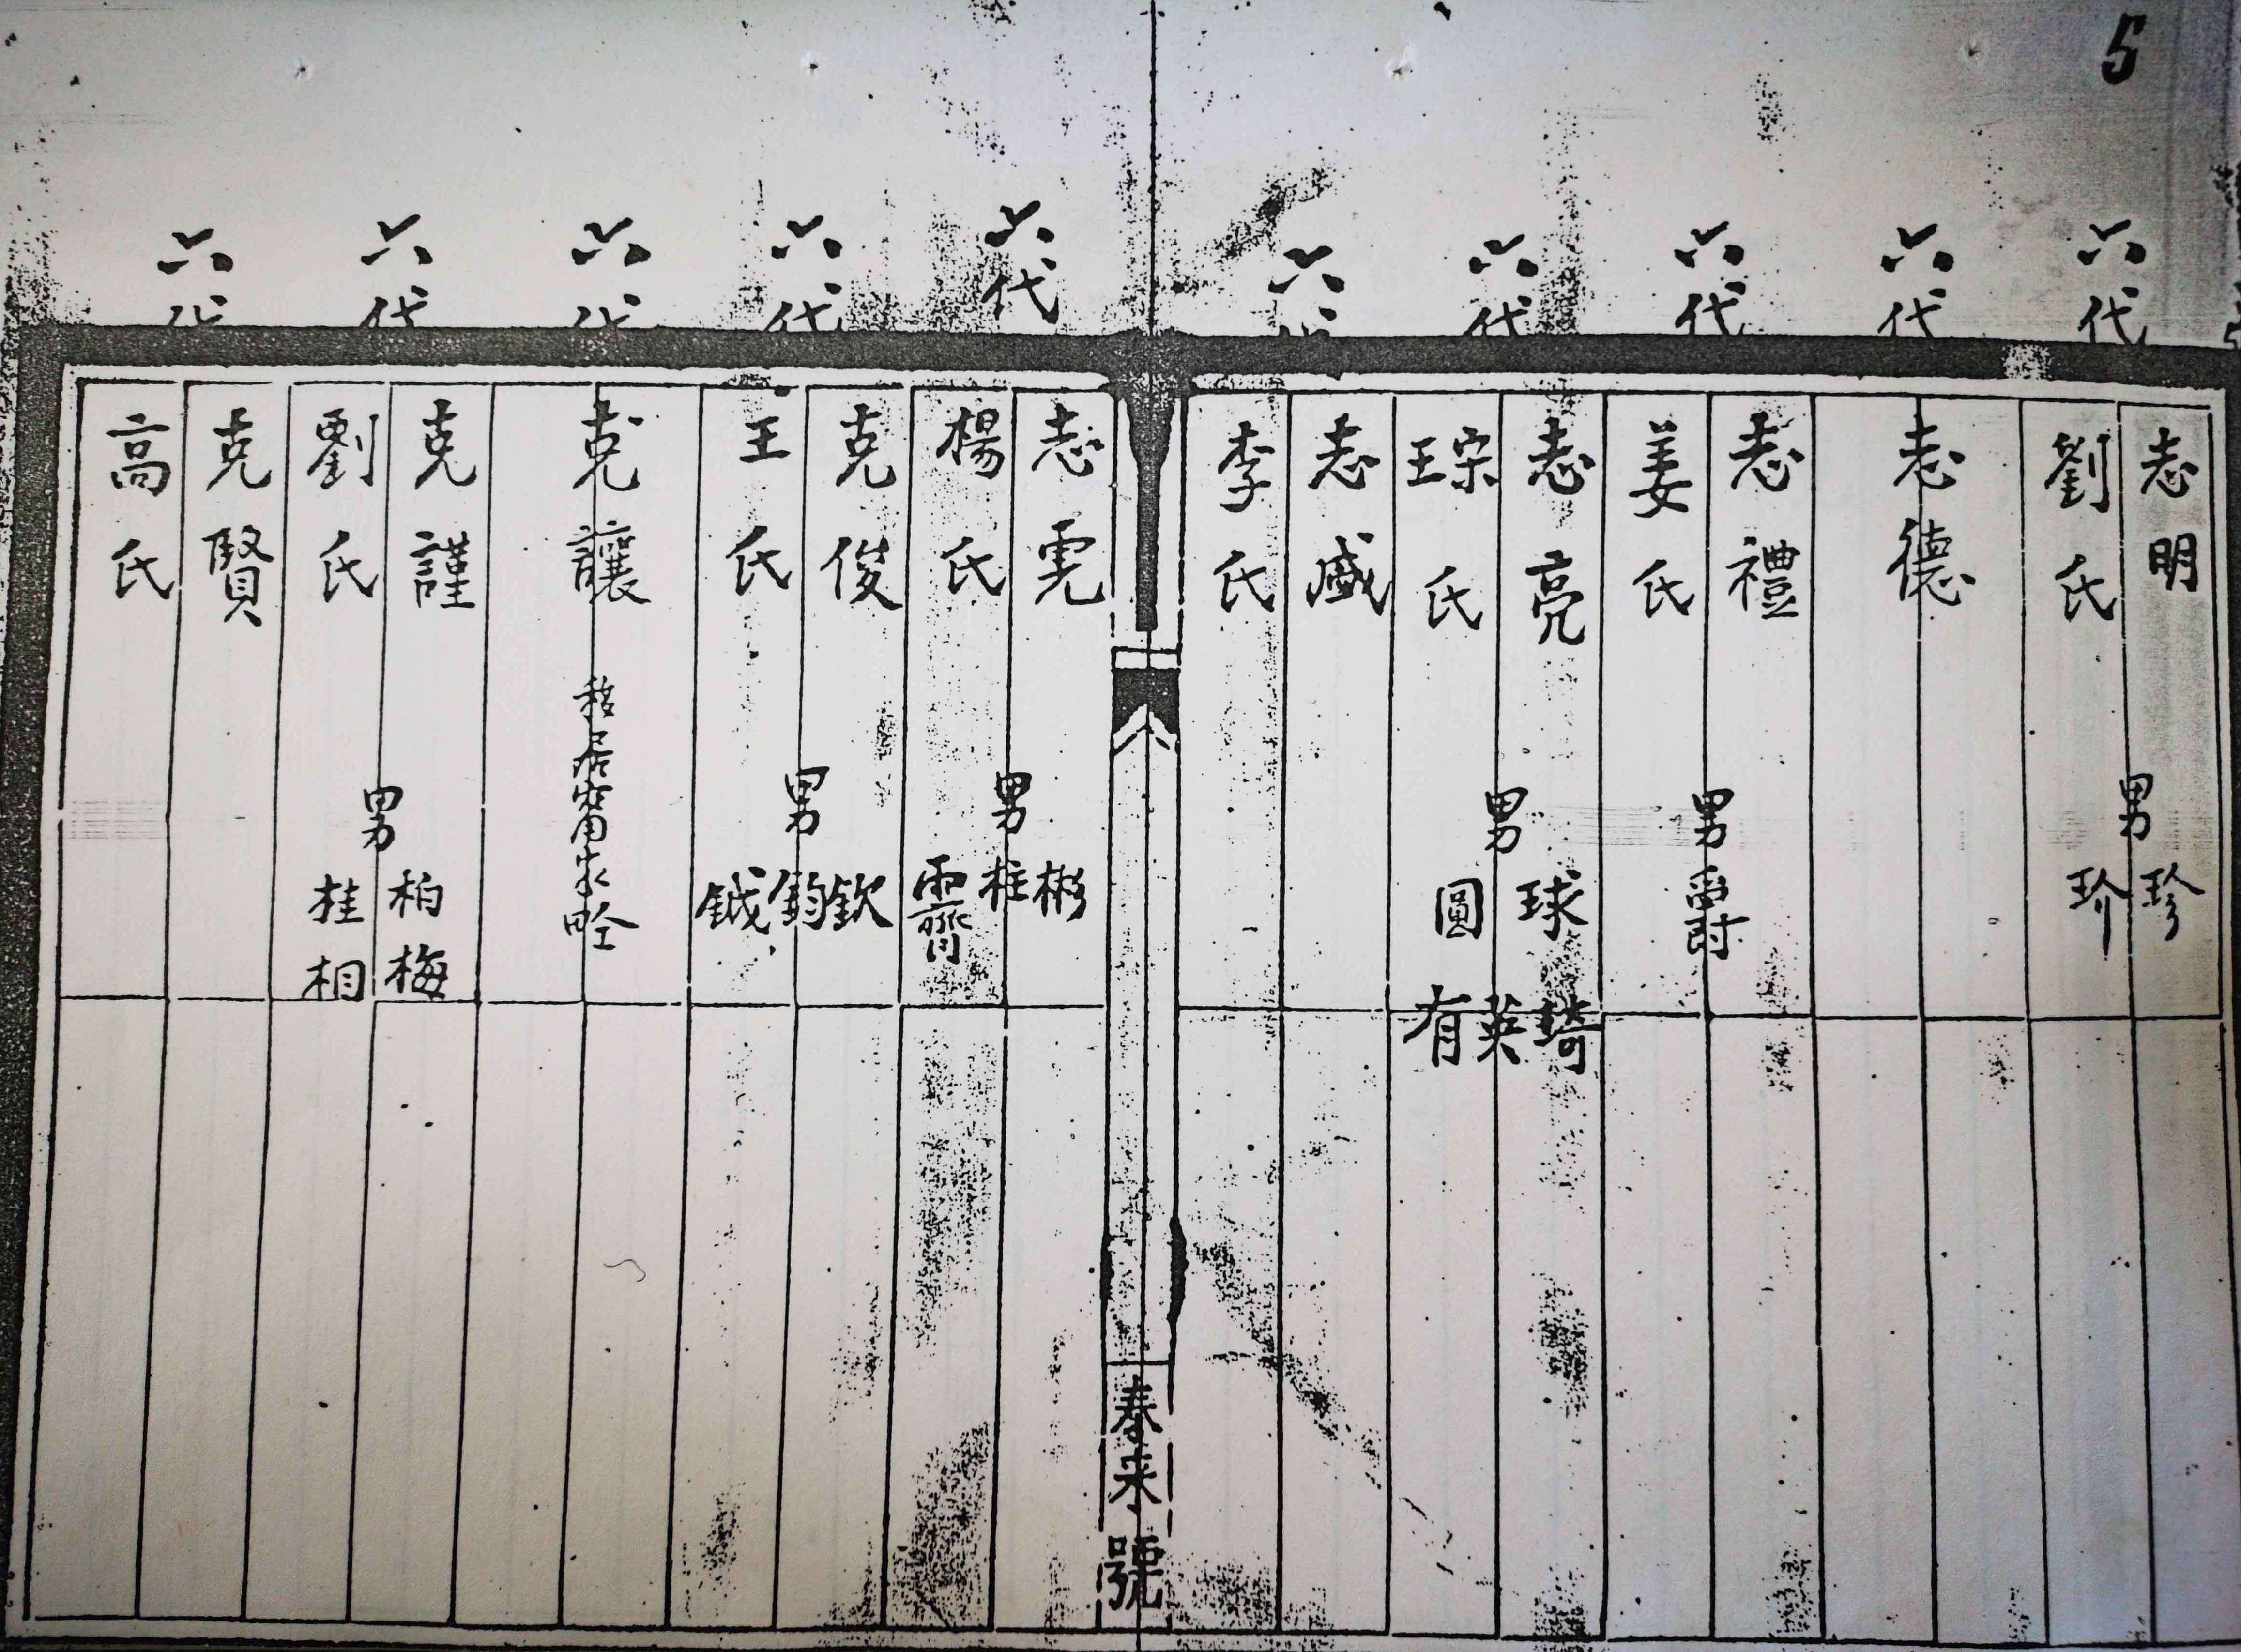 5
六代
志明
劉氏
男
珍
玠
六代
志德
六代
志禮
姜氏
男
爵
六代
志亮
宗氏
王
男
球
圓
琦
英
有
六代
志威
李氏
泰来號
六代
志
楊氏
男
彬
桂
霽
六代
克俊
王氏
男
欽
鈞
鉞
六代
克讓
移居甯
六代
克謹
劉氏
男
柏
梅
桂
相
六代
克賢
高氏